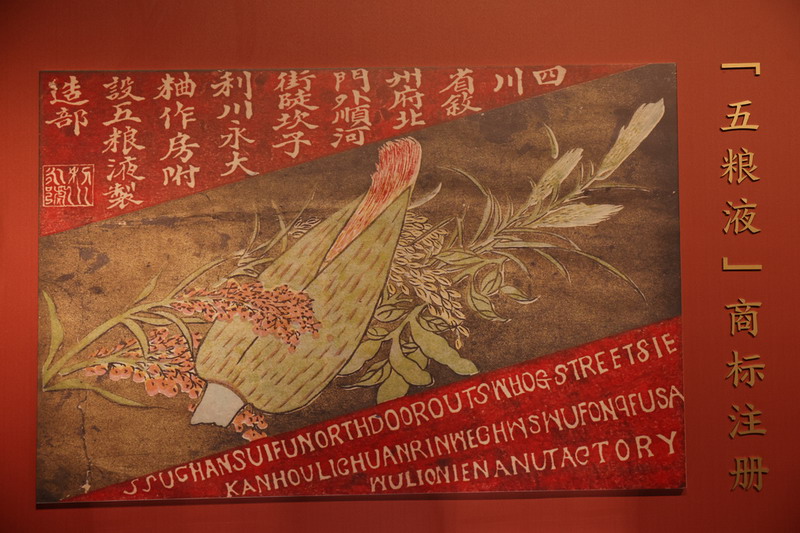 四
川
省敘
州府北
門外順河
街陡坎子
利川永大
粬作房附
設五粮液製
造部
SSUGHANSUIFUNORTHDOOROUTSWHOGSTREETSIE
KANHOULIGHUANRINWEGHWSWUFONQFUSA
WULIONIENANUTACTORY
「五粮液」商标注册